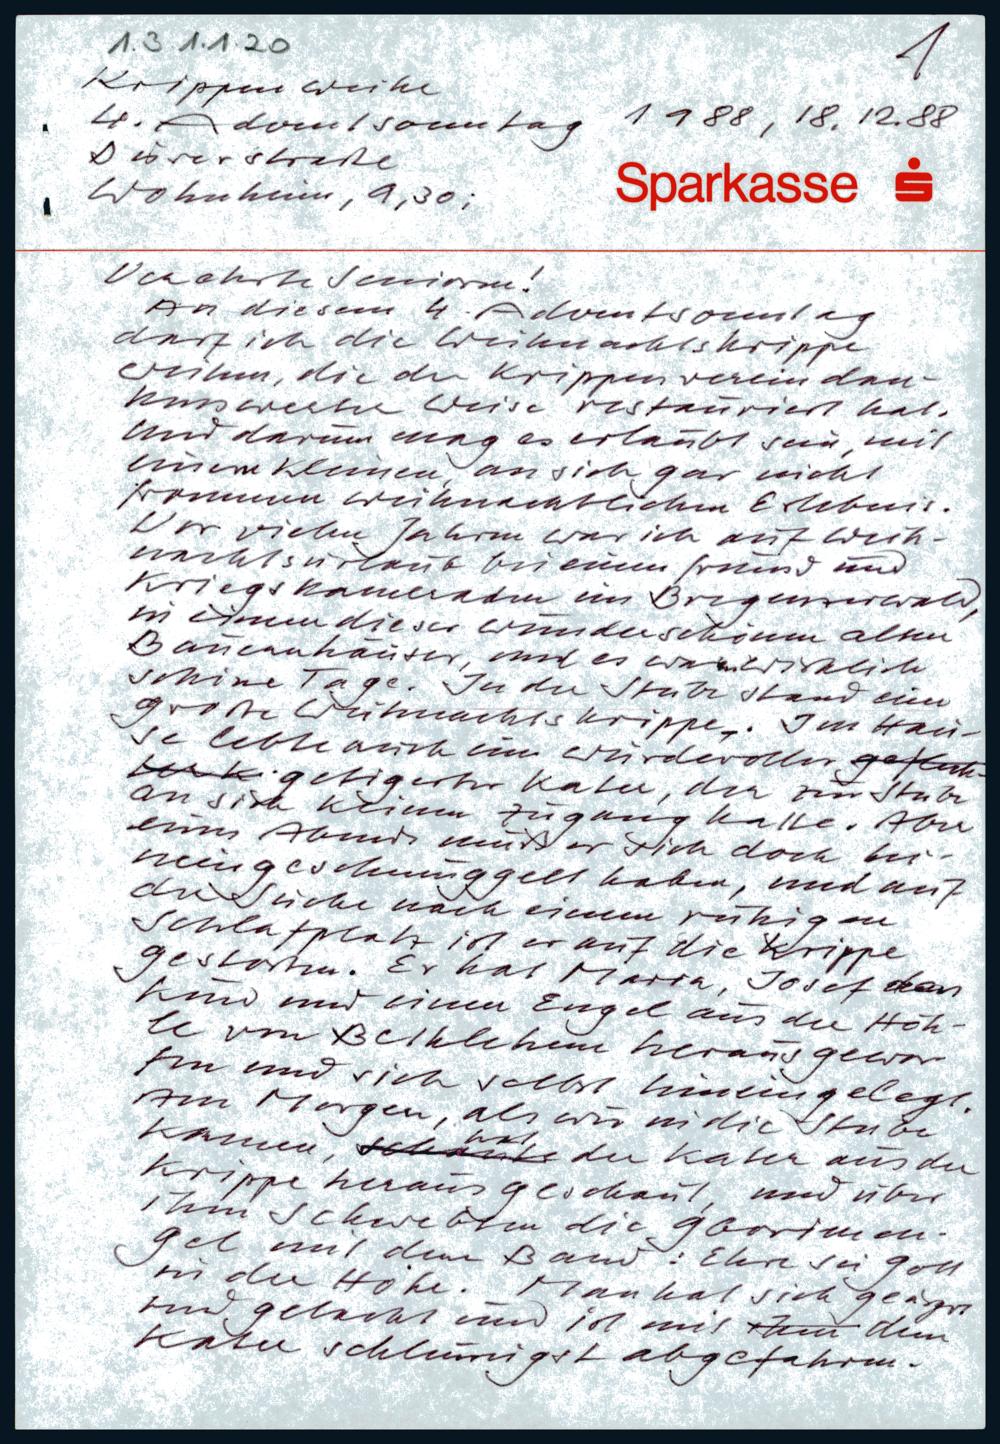 1.3 1.1.20
1
Krippenweihe
4. Adventsonntag 1988, 18.12.88
Dürerstraße
Wohnheim, 9,30;
Sparkasse
Verehrte Senioren!
An diesem 4. Adventsonntag
darf ich die Weihnachtskrippe
weihen, die der Krippenverein dan-
kenswerter Weise restauriert hat.
Und darum mag es erlaubt sein, mit
einem kleinen, an sich gar nicht
frommen weihnachtlichen Erlebnis.
Vor vielen Jahren war ich auf Weih-
nachtsurlaub bei einem Freund und
Kriegskameraden im Bregenzerwald,
in einem dieser wunderschönen alten
Bauernhäuser, und es waren wirklich
schöne Tage. In der Stube stand eine
große Weihnachtskrippe. Im Hau-
se lebte auch ein würdevoller
getigerter Kater, der zur Stube
an sich keinen Zugang hatte. Aber
eines Abends muß er sich doch hi-
neingeschmuggelt haben, und auf
der Suche nach einem ruhigen
Schlafplatz ist er auf die Krippe
gestoßen. Er hat Maria, Josef das
Kind und einen Engel aus der Höh-
le von Bethlehem herausgewor-
fen und sich selbst hineingelegt.
Am Morgen, als wir in die Stube
kamen, schaute hat der Kater aus der
Krippe herausgeschaut, und über
ihm schwebten die Gloriaen-
gel mit dem Band: Ehre sei Gott
in der Höhe. Man hat sich geärgert
und gelacht und ist mit dem
Kater schleunigst abgefahren.